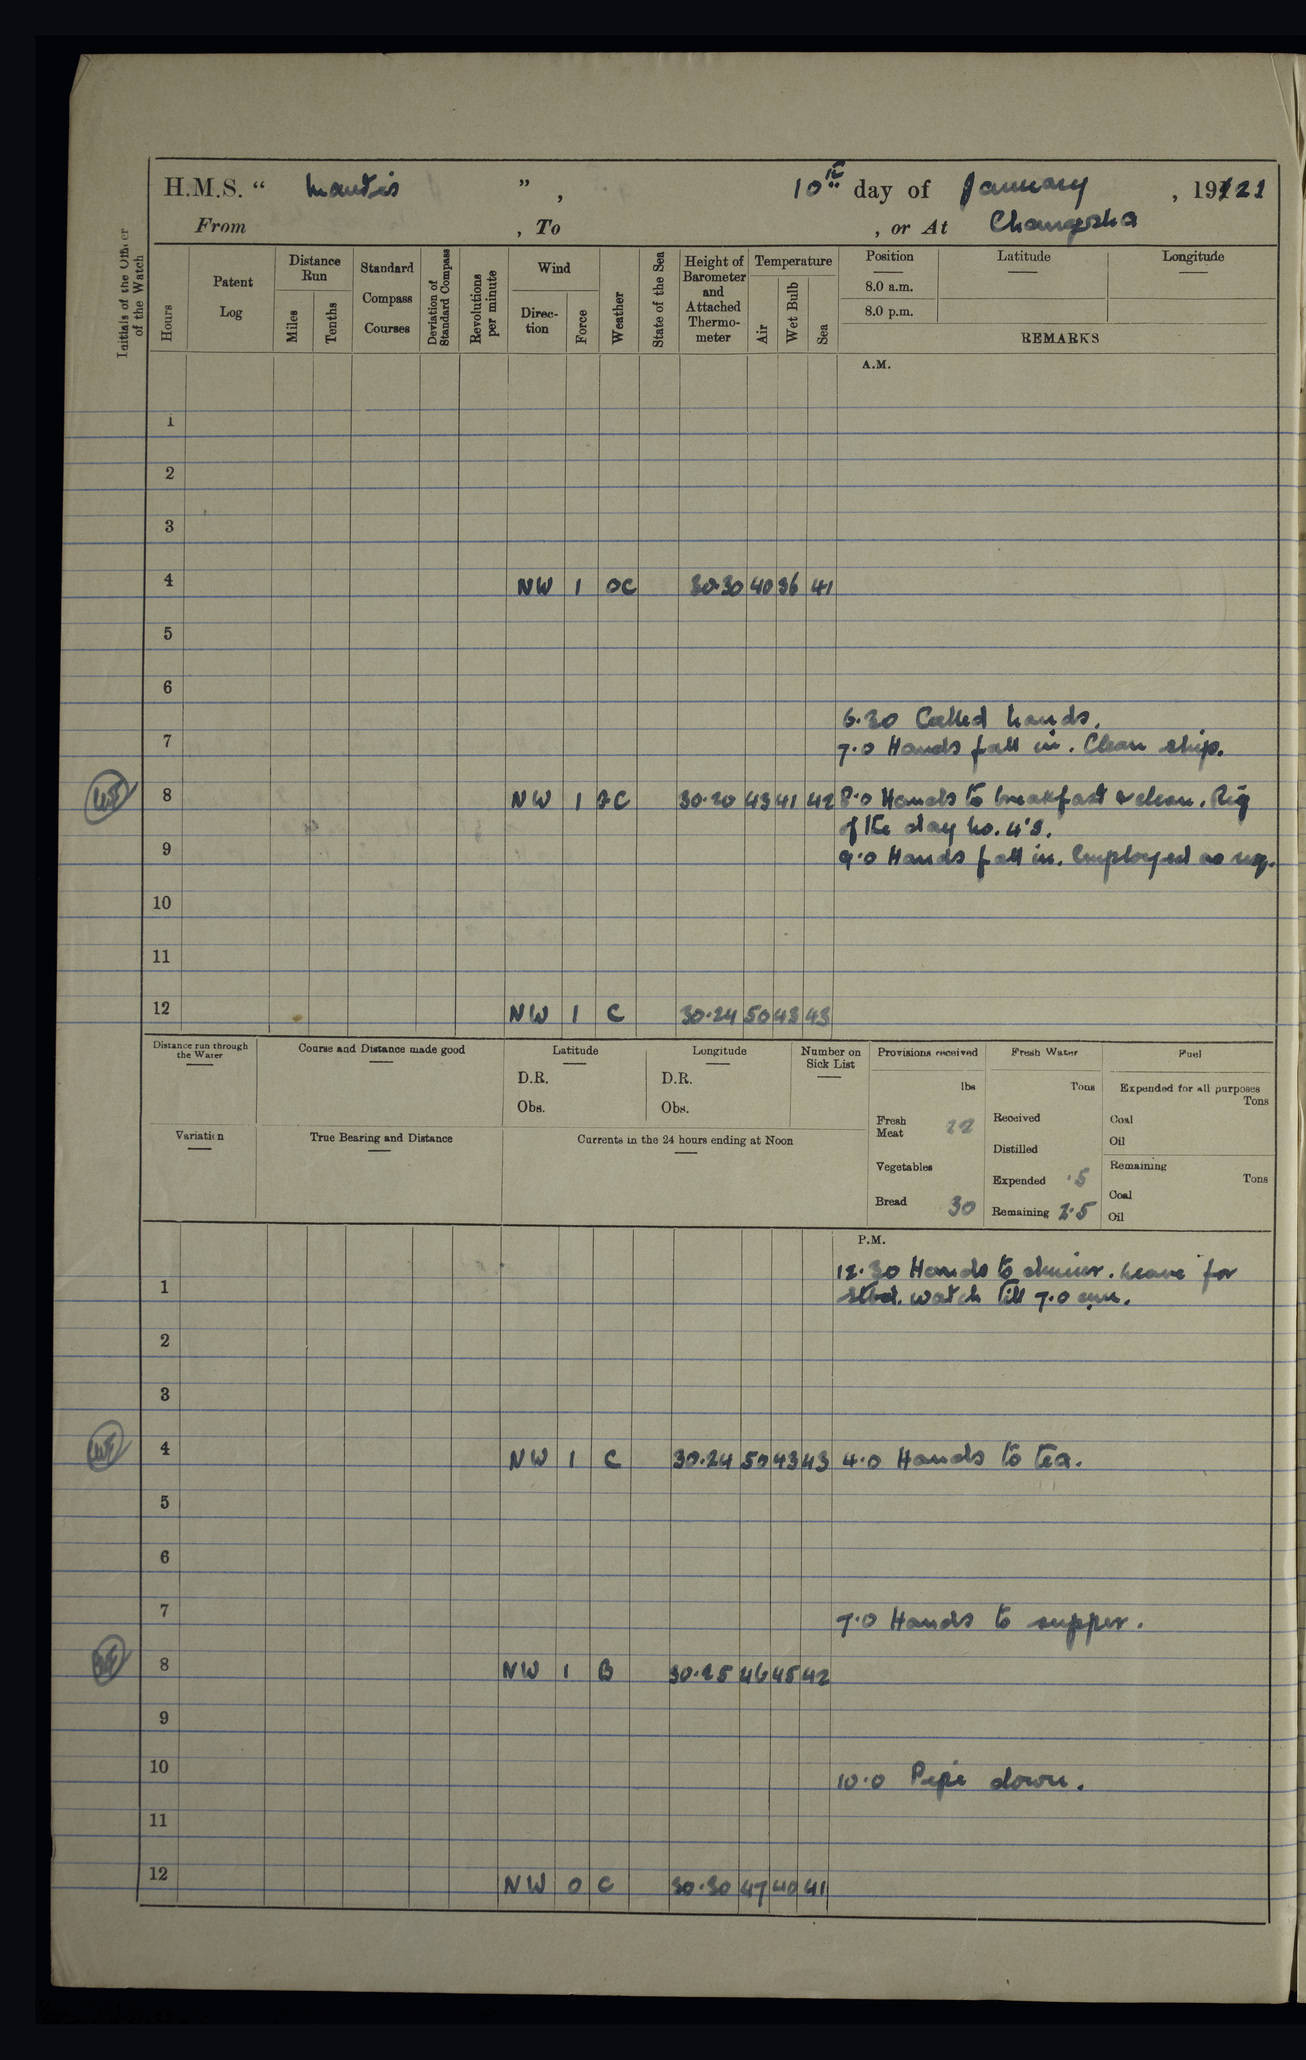 H.M.S. “ Mantis ” , 10th day of January , 19121
From , To , or At Changsha
Initials of the Officer of the Watch
Hours
Patent Log
Distance Run
Miles
Tenths
Standard Compass Courses
Deviation of Standard Compass
Revolutions per minute
Wind
Direc-tion
Force
Weather
State of the Sea
Height of Barometer and Attached Thermo-meter
Temperature
Air
Wet Bulb
Sea
Position Latitude Longitude
8.0 a.m.
8.0 p.m.
REMARKS
A.M.
1
2
3
4 NW 1 OC 30.30 40 36 41
5
6
6.30 Called hands.
7 7.0 Hands fall in. Clean ship.
8 NW 1 30.20 43 41 42 8.0 Hands to breakfast & clean. Rig
of the day No. 4's.
9 9.0 Hands fall in. Employed as req.
10
11
12 NW 1 C 30.24 50 43 43
Distance run through the Water
Course and Distance made good
Latitude
D.R.
Obs.
Longitude
D.R.
Obs.
Number on Sick List
Provisions received
lbs
Fresh Meat 22
Vegetables
Bread 30
Fresh Water
Tons
Received
Distilled
Expended .5
Remaining 2.5
Fuel
Expended for all purposes
Tons
Coal
Oil
Remaining
Tons
Coal
Oil
Variation
True Bearing and Distance
Currents in the 24 hours ending at Noon
P.M.
12.30 Hands to dinner. Leave for
1 stbd. watch till 7.0 a.m.
2
3
4 NW 1 C 30.24 50 43 43 4.0 Hands to tea.
5
6
7 7.0 Hands to supper.
8 NW 1 B 30.25 46 45 42
9
10 10.0 Pipe down.
11
12 NW 0 C 30.30 47 40 41